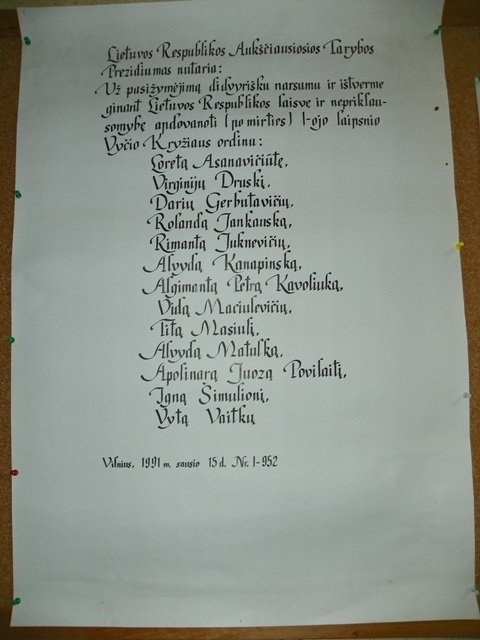 Lietuvos Respublikos Aukščiausiosios Tarybos
Prezidiumas nutaria:
Už pasižymėjimą didvyrišku narsumu ir ištverme
ginant Lietuvos Respublikos laisvę ir nepriklau-
somybę apdovanoti (po mirties) I-ojo laipsnio
Vyčio Kryžiaus ordinu:
Loretą Asanavičiūtę,
Virginijų Druskį,
Darių Gerbutavičių,
Rolandą Jankauską,
Rimantą Juknevičių,
Alvydą Kanapinską,
Algimantą Petrą Kavoliuką,
Vidą Maciulevičių,
Titą Masiulį,
Alvydą Matulką,
Apolinarą Juozą Povilaitį,
Igną Šimulionį,
Vytą Vaitkų
Vilnius, 1991 m. sausio 15 d. Nr. I-952